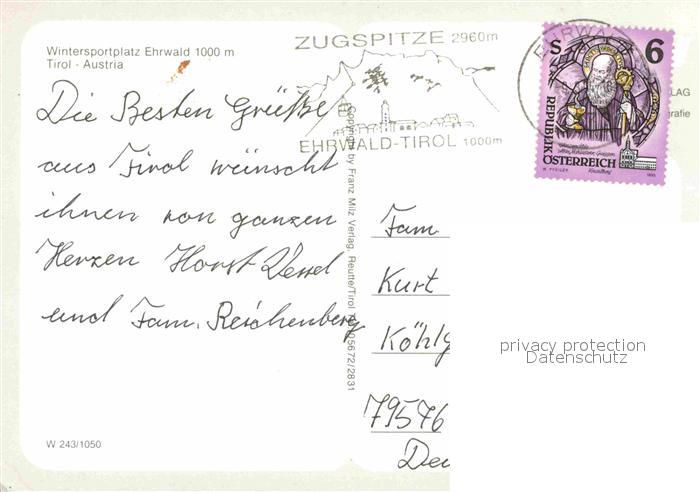 Wintersportplatz Ehrwald 1000 m
Tirol - Austria
ZUGSPITZE 2960m
EHRWALD-TIROL 1000m
EHRWALD
S 6
REPUBLIK
ÖSTERREICH
LAG
grafie
Die Besten Grüße
aus Tirol wünscht
ihnen von ganzen
Herzen Horst
und Fam. Reichenberg
Copyright by Franz Milz Verlag, Reutte/Tirol 05672/2831
Fam
Kurt
Köhlg
79576
Deu
privacy protection
Datenschutz
W 243/1050